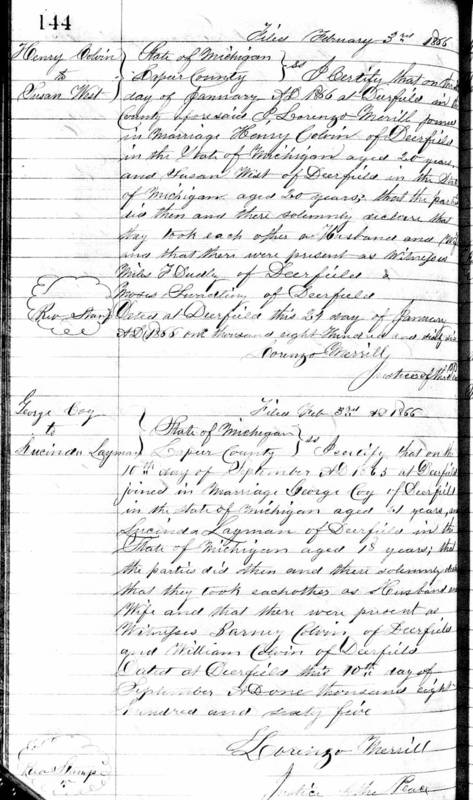 144
Filed February 3rd 1866
Henry Colvin
to
Susan West
State of Michigan
Lapeer County
ss I Certify that on the
day of January AD 1866 at Deerfield in the
County aforesaid I Lorenzo Merrill joined
in Marriage Henry Colvin of Deerfield
in the State of Michigan aged 20 years,
and Susan West of Deerfield in the State
of Michigan aged 20 years; that the parties
did then and there solemnly declare that
they took each other as Husband and Wife
and that there were present as Witnesses
Miles F Dudly of Deerfield &
Moses Swadling of Deerfield
Dated at Deerfield this 29 day of January
AD 1866 one thousand eight hundred and sixty six
Lorenzo Merrill
Justice of the
Rev Stamp
Filed Feb 3rd AD 1866
George Coy
to
Lucinda Layman
State of Michigan
Lapeer County
ss I certify that on the
10th day of September AD 1865 at Deerfield
joined in Marriage George Coy of Deerfield
in the State of Michigan aged 21 years, and
Lucinda Layman of Deerfield in the
State of Michigan aged 18 years; that
the parties did then and there solemnly
that they took eachother as Husband and
Wife and that there were present as
Witnesses Barney Colvin of Deerfield
and William Colvin of Deerfield
Dated at Deerfield this 10th day of
September AD one thousand eight
hundred and sixty five
Lorenzo Merrill
Justice of the Peace
Rev Stamp